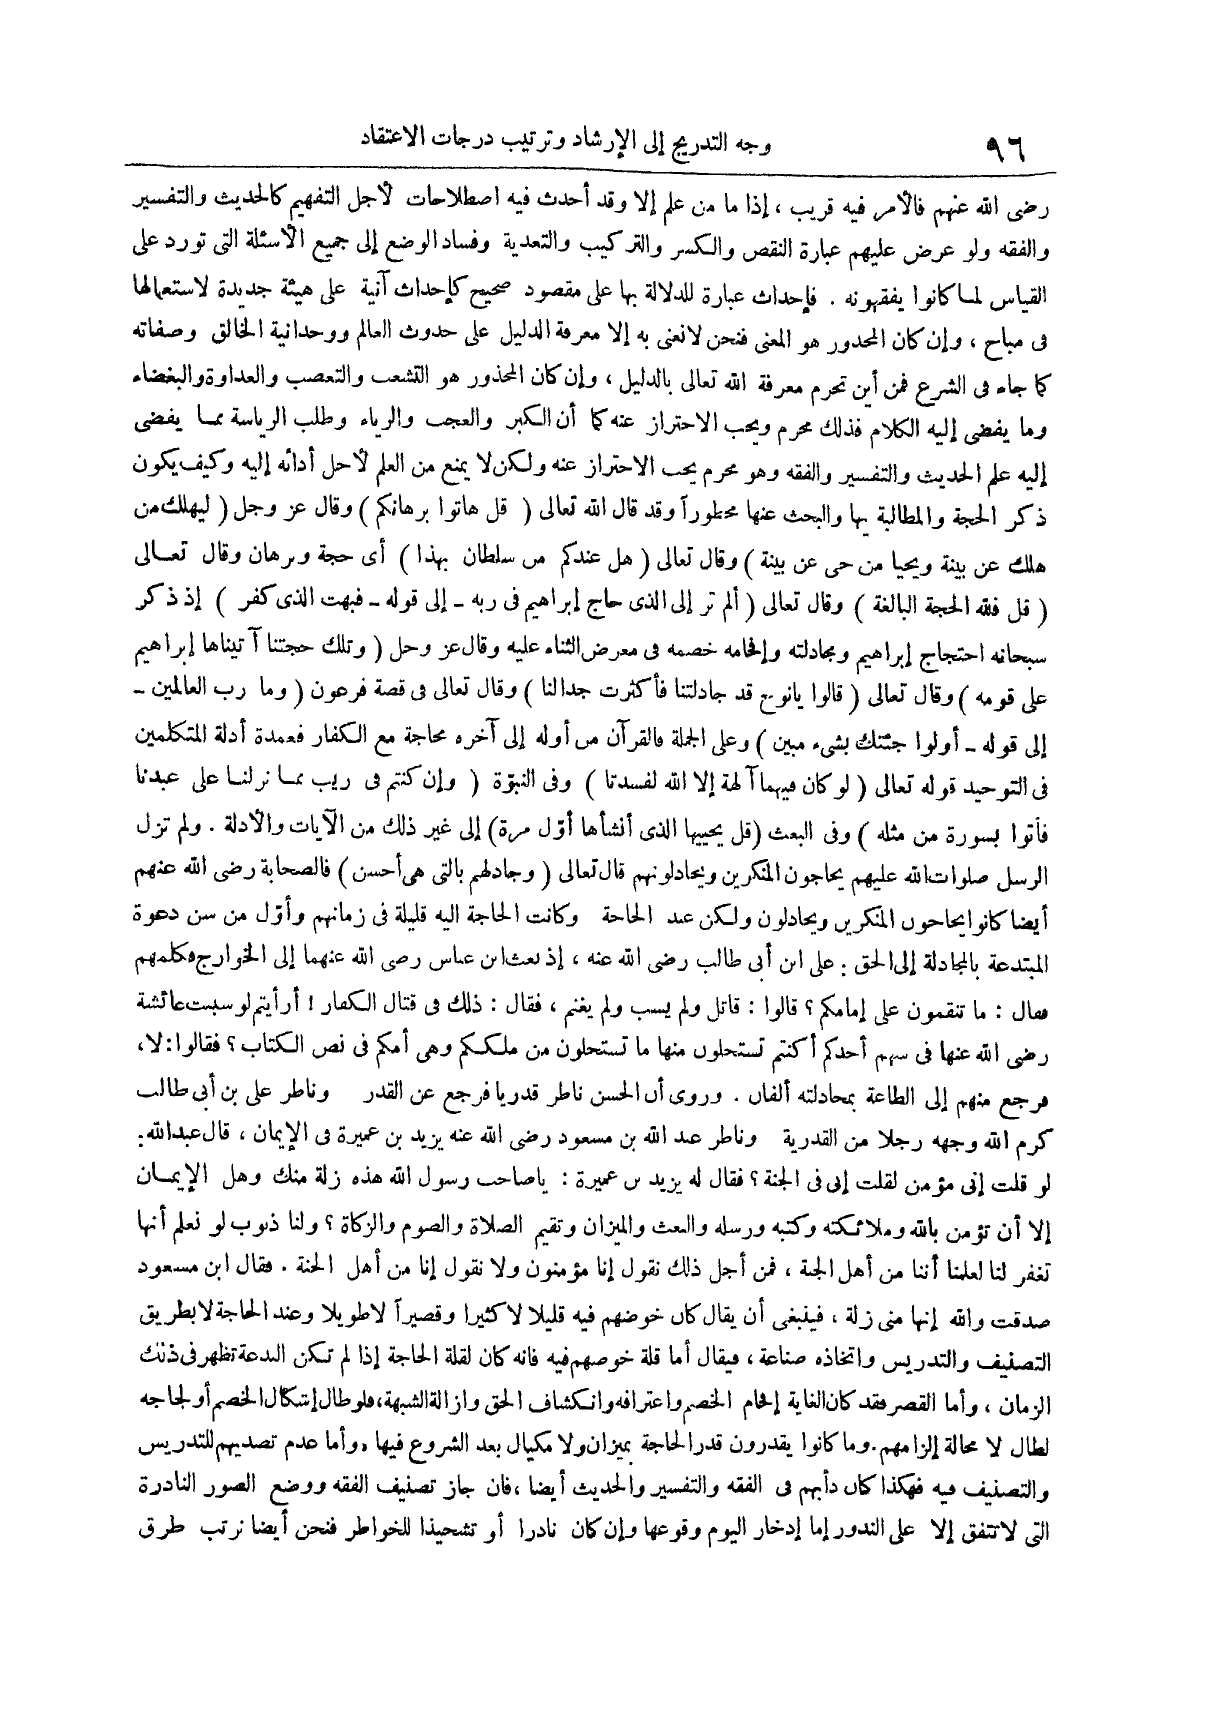 ٩٦ وجه التدريج إلى الإرشاد وترتيب درجات الاعتقاد
رضى الله عنهم فالأمر فيه قريب ، إذا ما من علم إلا وقد أحدث فيه اصطلاحات لأجل التفهيم كالحديث والتفسير
والفقه ولو عرض عليهم عبارة النقص والكسر والتركيب والتعدية وفساد الوضع إلى جميع الأسئلة التى تورد على
القياس لما كانوا يفقهونه . فإحداث عبارة للدلالة بها على مقصود صحيح كإحداث آنية على هيئة جديدة لاستعمالها
فى مباح ، وإن كان المحدور هو المعنى فنحن لانعنى به إلا معرفة الدليل على حدوث العالم ووحدانية الخالق وصفاته
كما جاء فى الشرع فمن أين تحرم معرفة الله تعالى بالدليل ، وإن كان المحذور هو التشعب والتعصب والعداوة والبغضاء
وما يفضى إليه الكلام فذلك محرم ويجب الاحتراز عنه كما أن الكبر والعجب والرياء وطلب الرياسة مما يفضى
إليه علم الحديث والتفسير والفقه وهو محرم يجب الاحتراز عنه ولكن لا يمنع من العلم لأجل أدائه إليه وكيف يكون
ذكر الحجة والمطالبة بها والبحث عنها محظوراً وقد قال الله تعالى ( قل هاتوا برهانكم ) وقال عز وجل ( ليهلك من
هلك عن بينة ويحيا من حى عن بينة ) وقال تعالى ( هل عندكم من سلطان بهذا ) أى حجة وبرهان وقال تعالى
( قل فلله الحجة البالغة ) وقال تعالى ( ألم تر إلى الذى حاج إبراهيم فى ربه ـ إلى قوله ـ فبهت الذى كفر ) إذ ذكر
سبحانه احتجاج إبراهيم ومجادلته وإفحامه خصمه فى معرض الثناء عليه وقال عز وجل ( وتلك حجتنا آتيناها إبراهيم
على قومه ) وقال تعالى ( قالوا يانوح قد جادلتنا فأكثرت جدالنا ) وقال تعالى فى قصة فرعون ( وما رب العالمين ـ
إلى قوله ـ أولوا جئتك بشىء مبين ) وعلى الجملة فالقرآن من أوله إلى آخره محاجة مع الكفار فعمدة أدلة المتكلمين
فى التوحيد قوله تعالى ( لو كان فيهما آلهة إلا الله لفسدتا ) وفى النبوّة ( وإن كنتم فى ريب مما نزلنا على عبدنا
فأتوا بسورة من مثله ) وفى البعث (قل يحييها الذى أنشأها أوّل مرة) إلى غير ذلك من الآيات والأدلة . ولم تزل
الرسل صلوات الله عليهم يحاجون المنكرين ويجادلونهم قال تعالى ( وجادلهم بالتى هى أحسن ) فالصحابة رضى الله عنهم
أيضا كانوا يحاجون المنكرين ويجادلون ولكن عند الحاجة وكانت الحاجة اليه قليلة فى زمانهم وأوّل من سن دعوة
المبتدعة بالمجادلة إلى الحق : على ابن أبى طالب رضى الله عنه ، إذ بعث ابن عباس رضى الله عنهما إلى الخوارج فكلمهم
فقال : ما تنقمون على إمامكم ؟ قالوا : قاتل ولم يسب ولم يغنم ، فقال : ذلك فى قتال الكفار ! أرأيتم لو سبيت عائشة
رضى الله عنها فى سهم أحدكم أكنتم تستحلون منها ما تستحلون من ملككم وهى أمكم فى نص الكتاب ؟ فقالوا : لا،
فرجع منهم إلى الطاعة بمجادلته ألفان . وروى أن الحسن ناظر قدريا فرجع عن القدر وناظر على بن أبى طالب
كرم الله وجهه رجلا من القدرية وناظر عبد الله بن مسعود رضى الله عنه يزيد بن عميرة فى الإيمان ، قال عبدالله:
لو قلت إنى مؤمن لقلت إنى فى الجنة ؟ فقال له يزيد بن عميرة : ياصاحب رسول الله هذه زلة منك وهل الإيمان
إلا أن تؤمن بالله وملائكته وكتبه ورسله والبعث والميزان وتقيم الصلاة والصوم والزكاة ؟ ولنا ذنوب لو نعلم أنها
تغفر لنا لعلمنا أننا من أهل الجنة ، فمن أجل ذلك نقول إنا مؤمنون ولا نقول إنا من أهل الجنة . فقال ابن مسعود
صدقت والله إنها منى زلة ، فينبغى أن يقال كان خوضهم فيه قليلا لا كثيرا وقصيراً لا طويلا وعند الحاجة لا بطريق
التصنيف والتدريس واتخاذه صناعة ، فيقال أما قلة خوصهم فيه فانه كان لقلة الحاجة إذا لم تكن البدعة تظهر فى ذلك
الزمان ، وأما القصر فقد كان الغاية إفحام الخصم واعترافه وانكشاف الحق وازالة الشبهة، فلو طال إشكال الخصم أو لجاجه
لطال لا محالة إلزامهم. وما كانوا يقدرون قدر الحاجة بميزان ولا مكيال بعد الشروع فيها ، وأما عدم تصديهم للتدريس
والتصنيف فيه فهكذا كان دأبهم فى الفقه والتفسير والحديث أيضا ،فان جاز تصنيف الفقه ووضع الصور النادرة
التى لاتتفق إلا على الندور إما إدخار اليوم وقوعها وإن كان نادرا أو تشحيذا للخواطر فنحن أيضا نرتب طرق